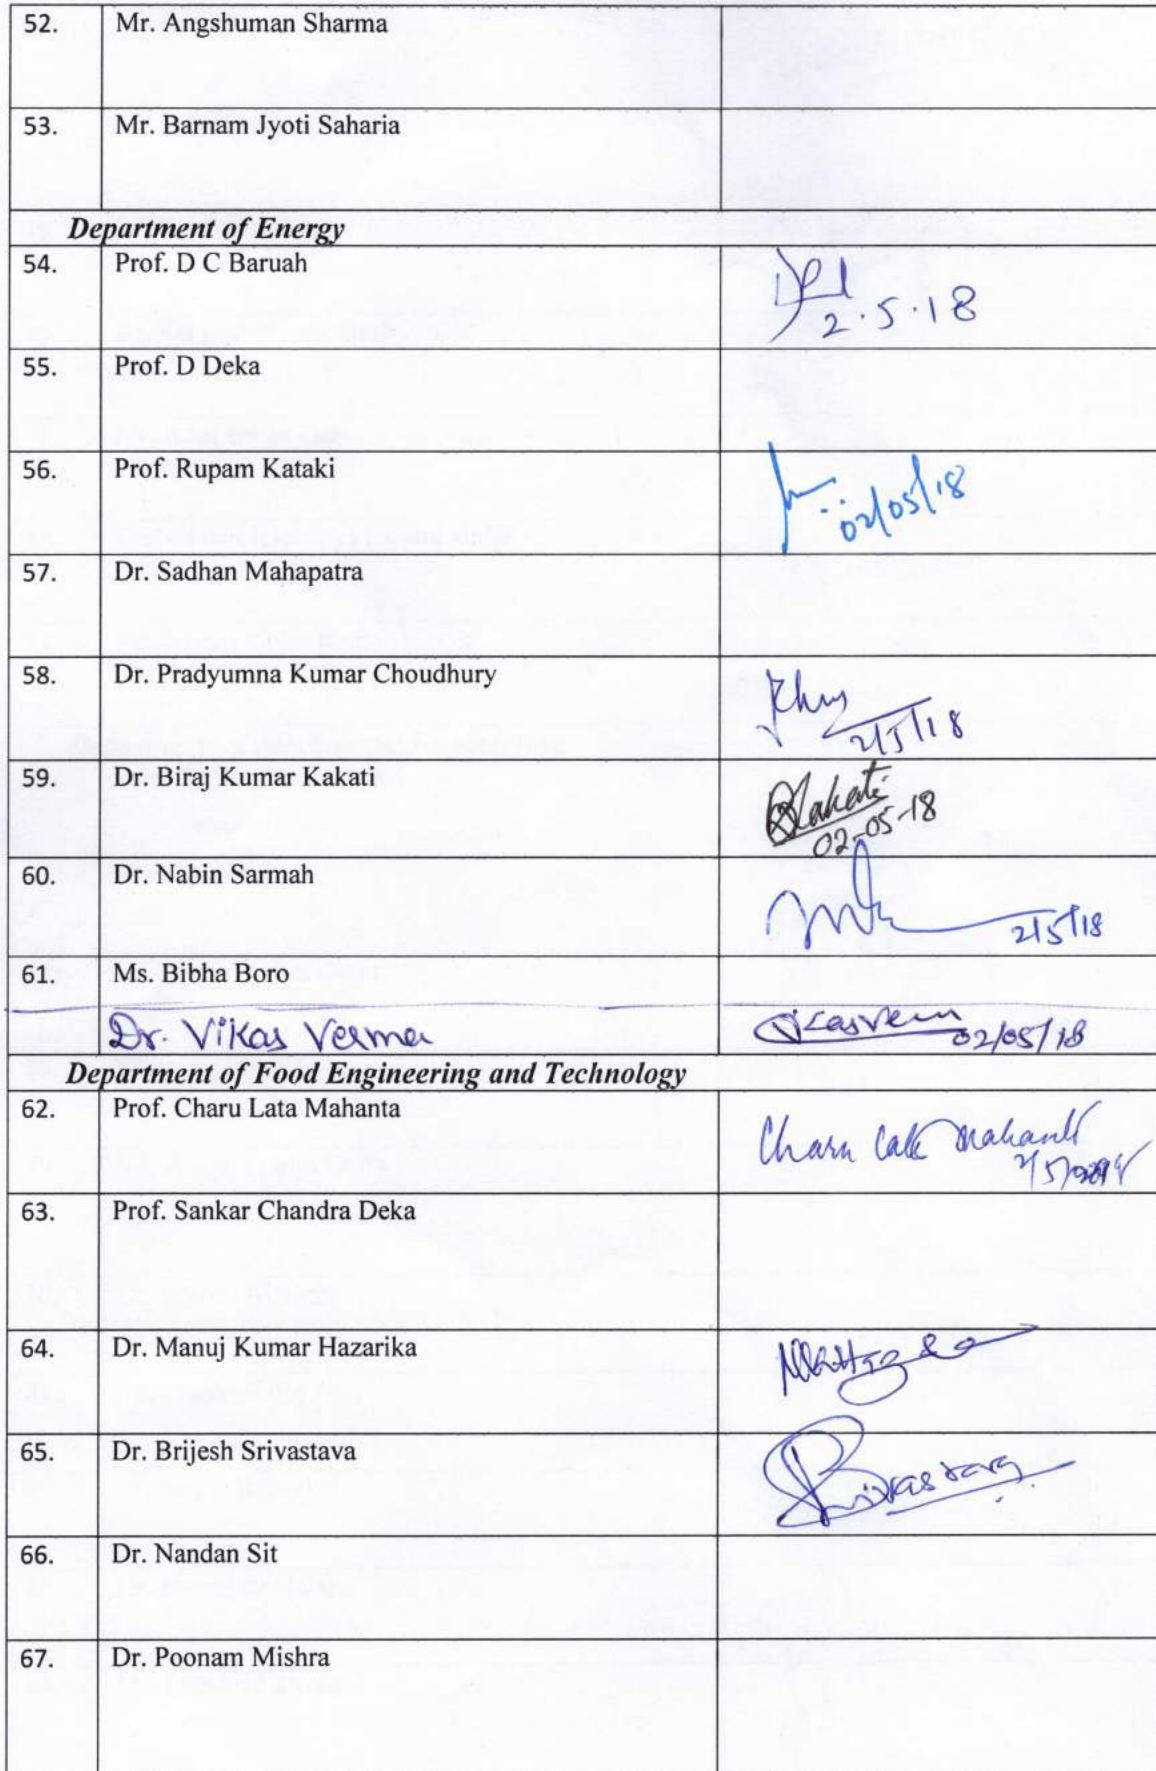 52. Mr. Angshuman Sharma
53. Mr. Barnam Jyoti Saharia
Department of Energy
54. Prof. D C Baruah
2.5.18
55. Prof. D Deka
56. Prof. Rupam Kataki
02/05/18
57. Dr. Sadhan Mahapatra
58. Dr. Pradyumna Kumar Choudhury
2/5/18
59. Dr. Biraj Kumar Kakati BKakati
02-05-18
60. Dr. Nabin Sarmah
2/5/18
61. Ms. Bibha Boro
Dr. Vikas Verma 02/05/18
Department of Food Engineering and Technology
62. Prof. Charu Lata Mahanta Charu Lata Mahanta
2/5/2018
63. Prof. Sankar Chandra Deka
64. Dr. Manuj Kumar Hazarika
65. Dr. Brijesh Srivastava Srivastava
66. Dr. Nandan Sit
67. Dr. Poonam Mishra